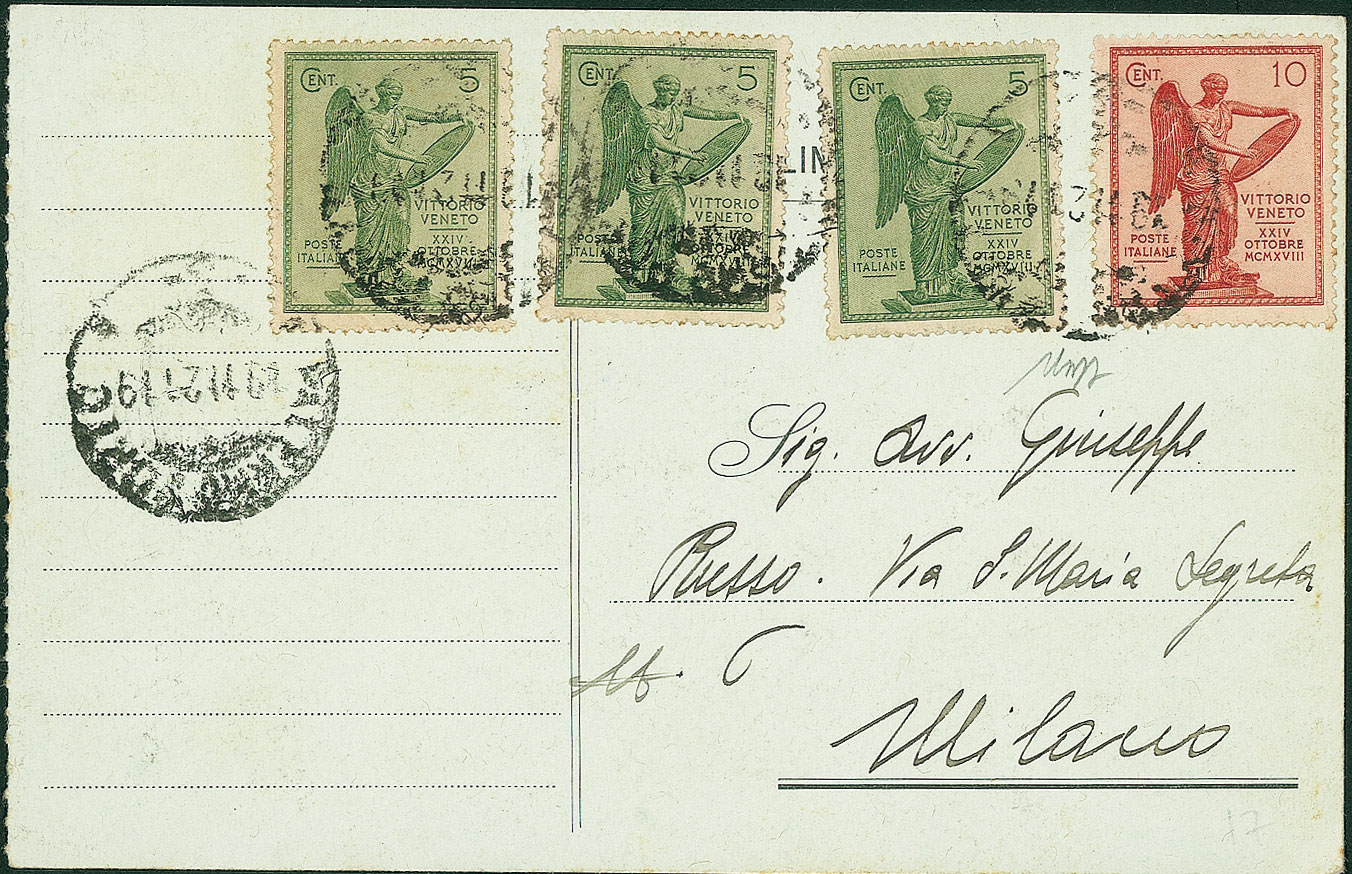 CENT. 5
VITTORIO
VENETO
XXIV
OTTOBRE
MCMXVIII
POSTE
ITALIANE
CENT. 5
VITTORIO
VENETO
XXIV
OTTOBRE
MCMXVIII
POSTE
ITALIANE
CENT. 5
VITTORIO
VENETO
XXIV
OTTOBRE
MCMXVIII
POSTE
ITALIANE
CENT. 10
VITTORIO
VENETO
XXIV
OTTOBRE
MCMXVIII
POSTE
ITALIANE
Sig. Avv. Giuseppe
Russo. Via S. Maria Segreta
Milano
17